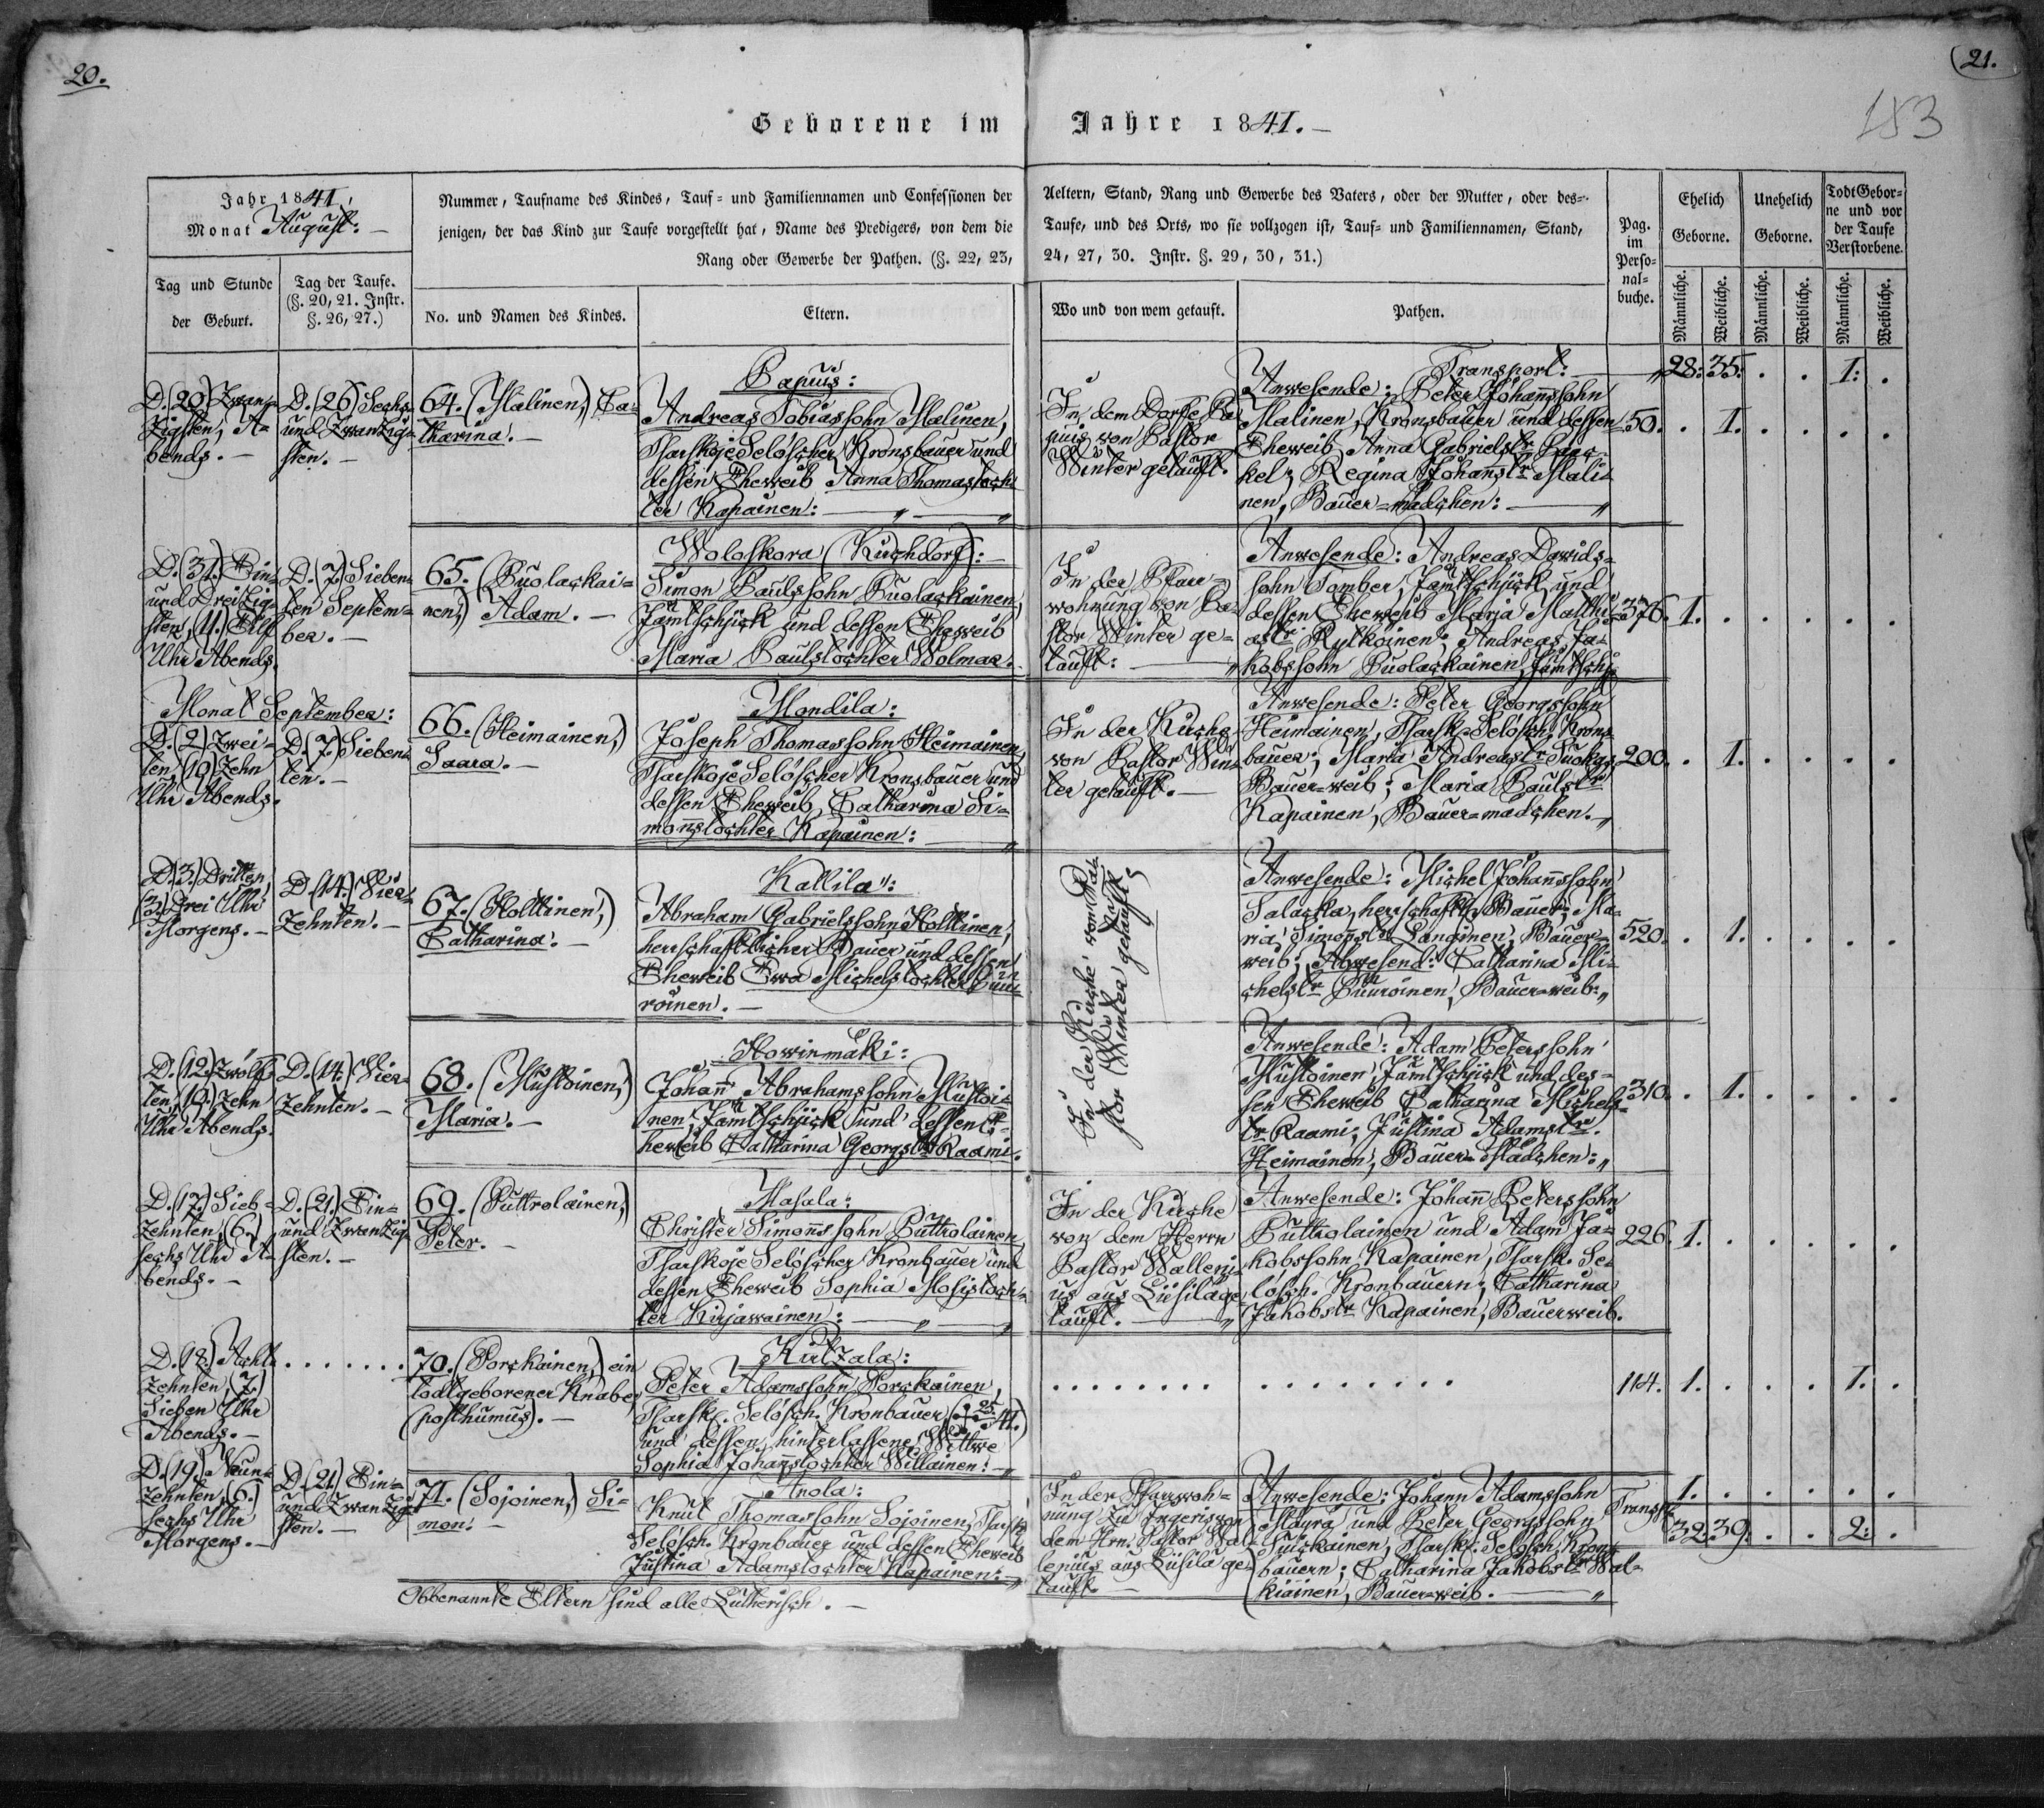 20.
21.
183
Geborene im Jahre 1841.
Jahr 1841,
Monat August:
Tag und Stunde
der Geburt.
Tag der Taufe.
(§. 20, 21. Instr.
§. 26, 27.)
Nummer, Taufname des Kindes, Tauf- und Familiennamen und Confessionen der
jenigen, der das Kind zur Taufe vorgestellt hat, Name des Predigers, von dem die
Rang oder Gewerbe der Pathen. (§. 22, 23,
No. und Namen des Kindes.
Eltern.
Aeltern, Stand, Rang und Gewerbe des Vaters, oder der Mutter, oder des-
Taufe, und des Orts, wo sie vollzogen ist, Tauf- und Familiennamen, Stand,
24, 27, 30. Instr. §. 29, 30, 31.)
Wo und von wem getauft.
Pathen.
Pag.
im
Perso-
nal-
buche.
Ehelich
Geborne.
Unehelich
Geborne.
Todt Gebor-
ne und vor
der Taufe
Verstorbene.
Männliche.
Weibliche.
Männliche.
Weibliche.
Männliche.
Weibliche.
Transport: 28. 35. . . 1. .
D. (20) Zwan-
zigsten, A-
bends. -
D. (26) Sechs
und Zwanzig-
sten. -
64. (Malinen,) Ca-
tharina. -
Papuis:
Andreas Tobiassohn Malinen,
Tsarskoje Seloscher Kronsbauer und
dessen Eheweib Anna Thomastoch-
ter Kapainen:
In dem Dorfe Pa-
puis von Pastor
Winter getauft.
Anwesende: Peter Johannssohn
Malinen, Kronsbauer und dessen
Eheweib Anna Gabrielstr
kel; Regina Johannstr Mali-
nen, Bauer=mädchen:
50. . 1. . . . .
D. (31.) Ein-
und Dreizig-
sten, 11. Eilf
Uhr Abends.
D. (7.) Sieben-
ten Septem-
ber. -
65. (Puolackai-
nen,) Adam. -
Woloskora (Kirchdorf): -
Simon Paulssohn Puolackainen,
Jämtschjick und dessen Eheweib
Maria Paulstochter Wolmar.
In der Pfarr-
wohnung von Pa-
stor Winter ge-
tauft:
Anwesende: Andreas Davids-
sohn Tomber, Jämtschjick und
dessen Eheweib Maria Matthi-
astr Rylkoinen; Andreas Ja-
kobssohn Puolackainen, Jämtschj.
376. 1. . . . . .
Monat September:
D. (2) Zwei-
ten, (10) Zehn
Uhr Abends.
D. (7.) Sieben-
ten. -
66. (Heimainen,)
Saara. -
Mondila:
Joseph Thomassohn Heimainen,
Tsarskoje Seloscher Kronsbauer und
dessen Eheweib, Catharina Si-
monstochter Kapainen:
In der Kirche
von Pastor Win-
ter getauft. -
Anwesende: Peter Georgssohn
Heimainen, Tsarsk-Selösch. Krons-
bauer; Maria Andreastr Suokas,
Bauer=weib; Maria Paulstr
Kapainen, Bauer=mädchen.
200. . 1. . . . .
D. 3.) Dritten,
(3.) Drei Uhr
Morgens. -
D. (14.) Vier-
zehnten. -
67. (Holttinen,)
Catharina. -
Kallila:
Abraham Gabrielssohn Holttinen,
herrschaftlicher Bauer und dessen
Eheweib Ewa Michelstochter Puu-
roinen. -
In der Kirche vom Pa-
stor Winter getauft
Anwesende: Michel Johannssohn
Salacka, herrschaftl. Bauer; Ma-
ria Simonstr Langinen, Bauer-
weib; Abwesend: Catharina Mi-
chelstr Puuroinen, Bauer=weib:
520. . 1. . . . .
D. (12.) Zwölf-
ten, (10.) Zehn
Uhr Abends.
D. (14.) Vier-
zehnten. -
68. (Mustoinen,)
Maria. -
Howinmäki:
Johann Abrahamssohn Mustoi-
nen, Jämtschjick und dessen E-
heweib Catharina Georgstr Raami.
Anwesende: Adam Peterssohn
Mustoinen, Jämtschjick und des-
sen Eheweib Catharina Michels-
tr Raami; Justina Adamstr
Heimainen, Bauer=Mädchen:
310. . 1. . . . .
D. (17.) Sieb-
zehnten, (6.)
sechs Uhr A-
bends. -
D. (21.) Ein-
und Zwanzig-
sten. -
69. (Puttrolainen,)
Peter. -
Masala:
Christer Simonssohn Puttrolainen,
Tsarskoje Seloscher Kronbauer und
dessen Eheweib Sophia Mosistoch-
ter Kirjawainen:
In der Kirche
von dem Herrn
Pastor Walleni-
us aus Liisilä ge-
tauft. -
Anwesende: Johann Peterssohn
Puttrolainen und Adam Ja-
kobssohn Kapainen, Tsarsk. Se-
lösch. Kronbauern; Catharina
Jakobstr Kapainen, Bauerweib.
226. 1. . . . . .
D. (18.) Acht-
zehnten, (7.)
Sieben Uhr
Abends. -
. . . . . . .
70. (Porckainen,) ein
todtgeborener Knabe
(posthumus). -
Kultzala:
Peter Adamssohn Porckainen,
Tsarsk. Selösch. Kronbauer,
und dessen hinterlassene Wittwe
Sophia Johannstochter Willainen:
. . . . . . . .
. . . . . . . . .
114. 1. . . . 1. .
D. (19) Neun-
zehnten, (6.)
sechs Uhr
Morgens. -
D. (21) Ein-
und Zwanzig-
sten. -
71. (Sojoinen,) Si-
mon. -
Anola:
Knut Thomassohn Sojoinen, Tsarsk.
Selösch. Kronbauer und dessen Eheweib
Justina Adamstochter Kapainen:
In der Pfarrwoh-
nung zu Ingeris von
dem Hrn. Pastor Wal-
lenius aus Liisilä ge-
tauft. -
Anwesende: Johann Adamssohn
Mäyrä und Peter Georgssohn
Tuickainen, Tsarsk. Selösch. Kron-
bauern; Catharina Jakobstr Wal-
kiainen, Bauer=weib.
1. . . . . .
Transp.
32. 39. . . 2. .
Obbenannte Eltern sind alle Lutherisch. -